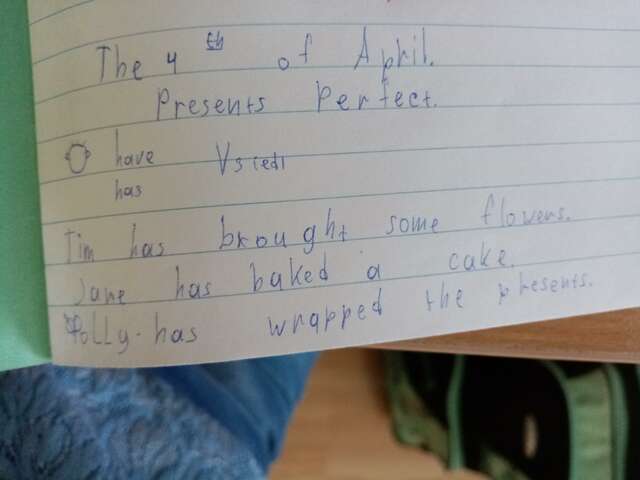 The 4th of April.
Presents Perfect.
have V3(ed)
has
Tim has brought some flowers.
Jane has baked a cake.
Polly has wrapped the presents.